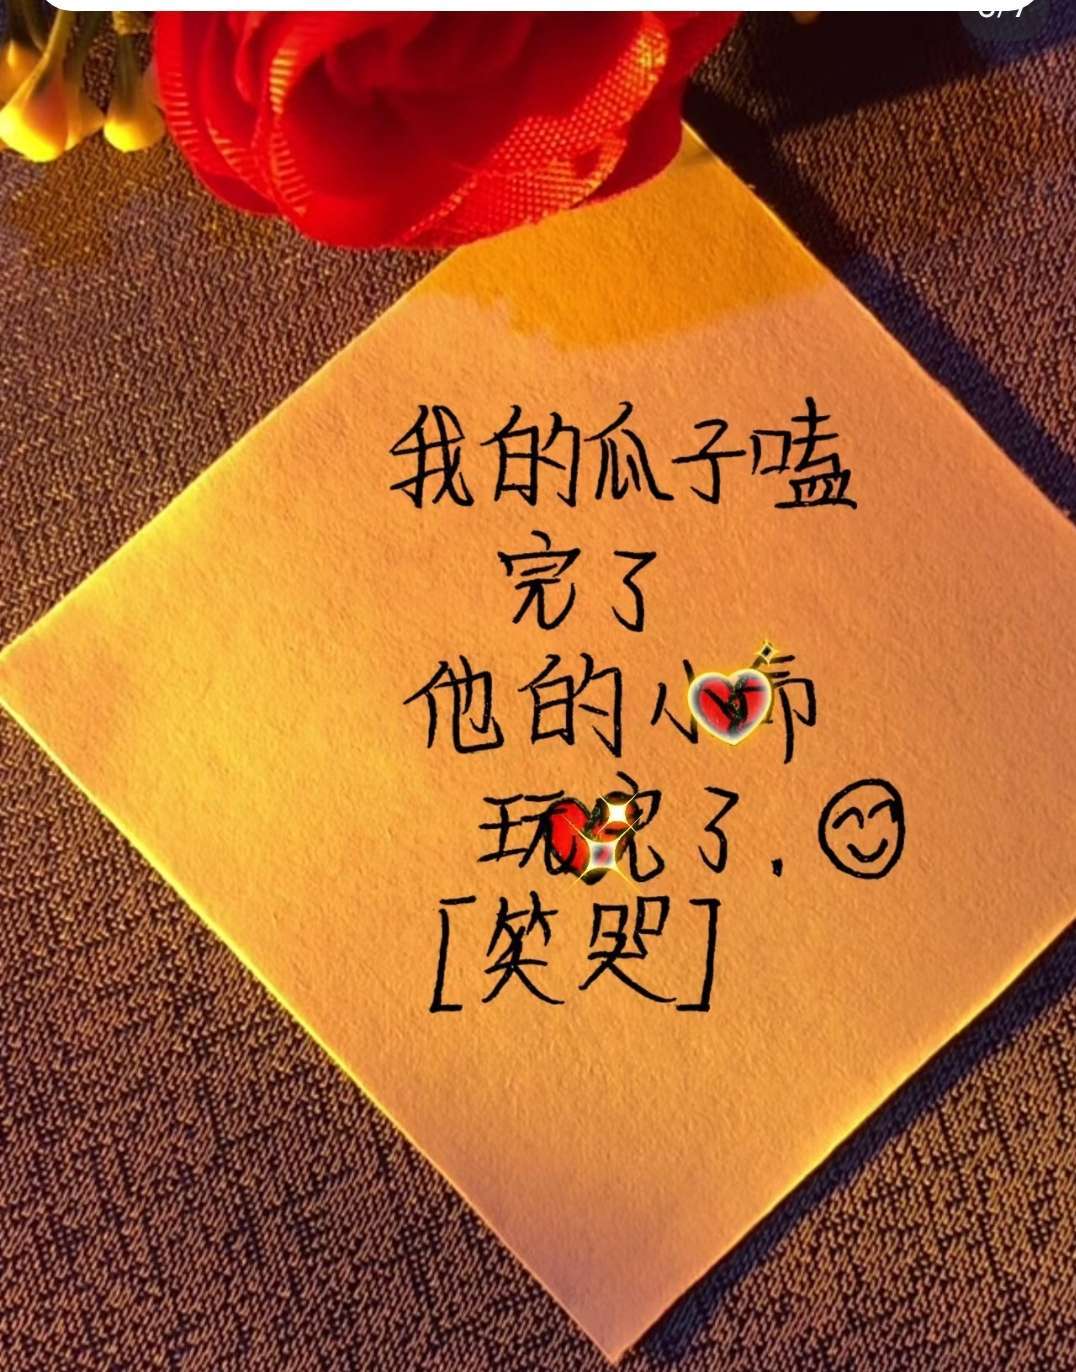 我的瓜子嗑
完了
他的小
玩完了.
[笑哭]